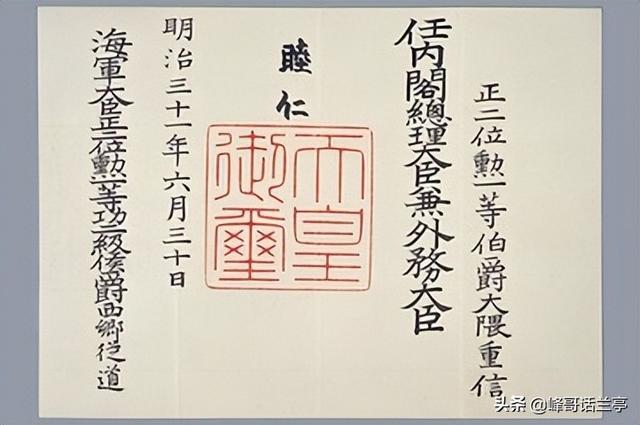 正二位勲一等伯爵大隈重信
任内閣總理大臣兼外務大臣
睦仁
天皇
御璽
明治三十一年六月三十日
海軍大臣正二位勲一等功二級侯爵西郷従道
头条 @峰哥话兰亭